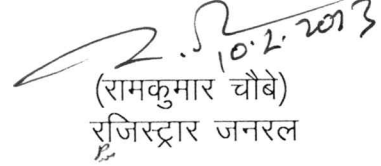 10.2.2013
(रामकुमार चौबे)
रजिस्ट्रार जनरल